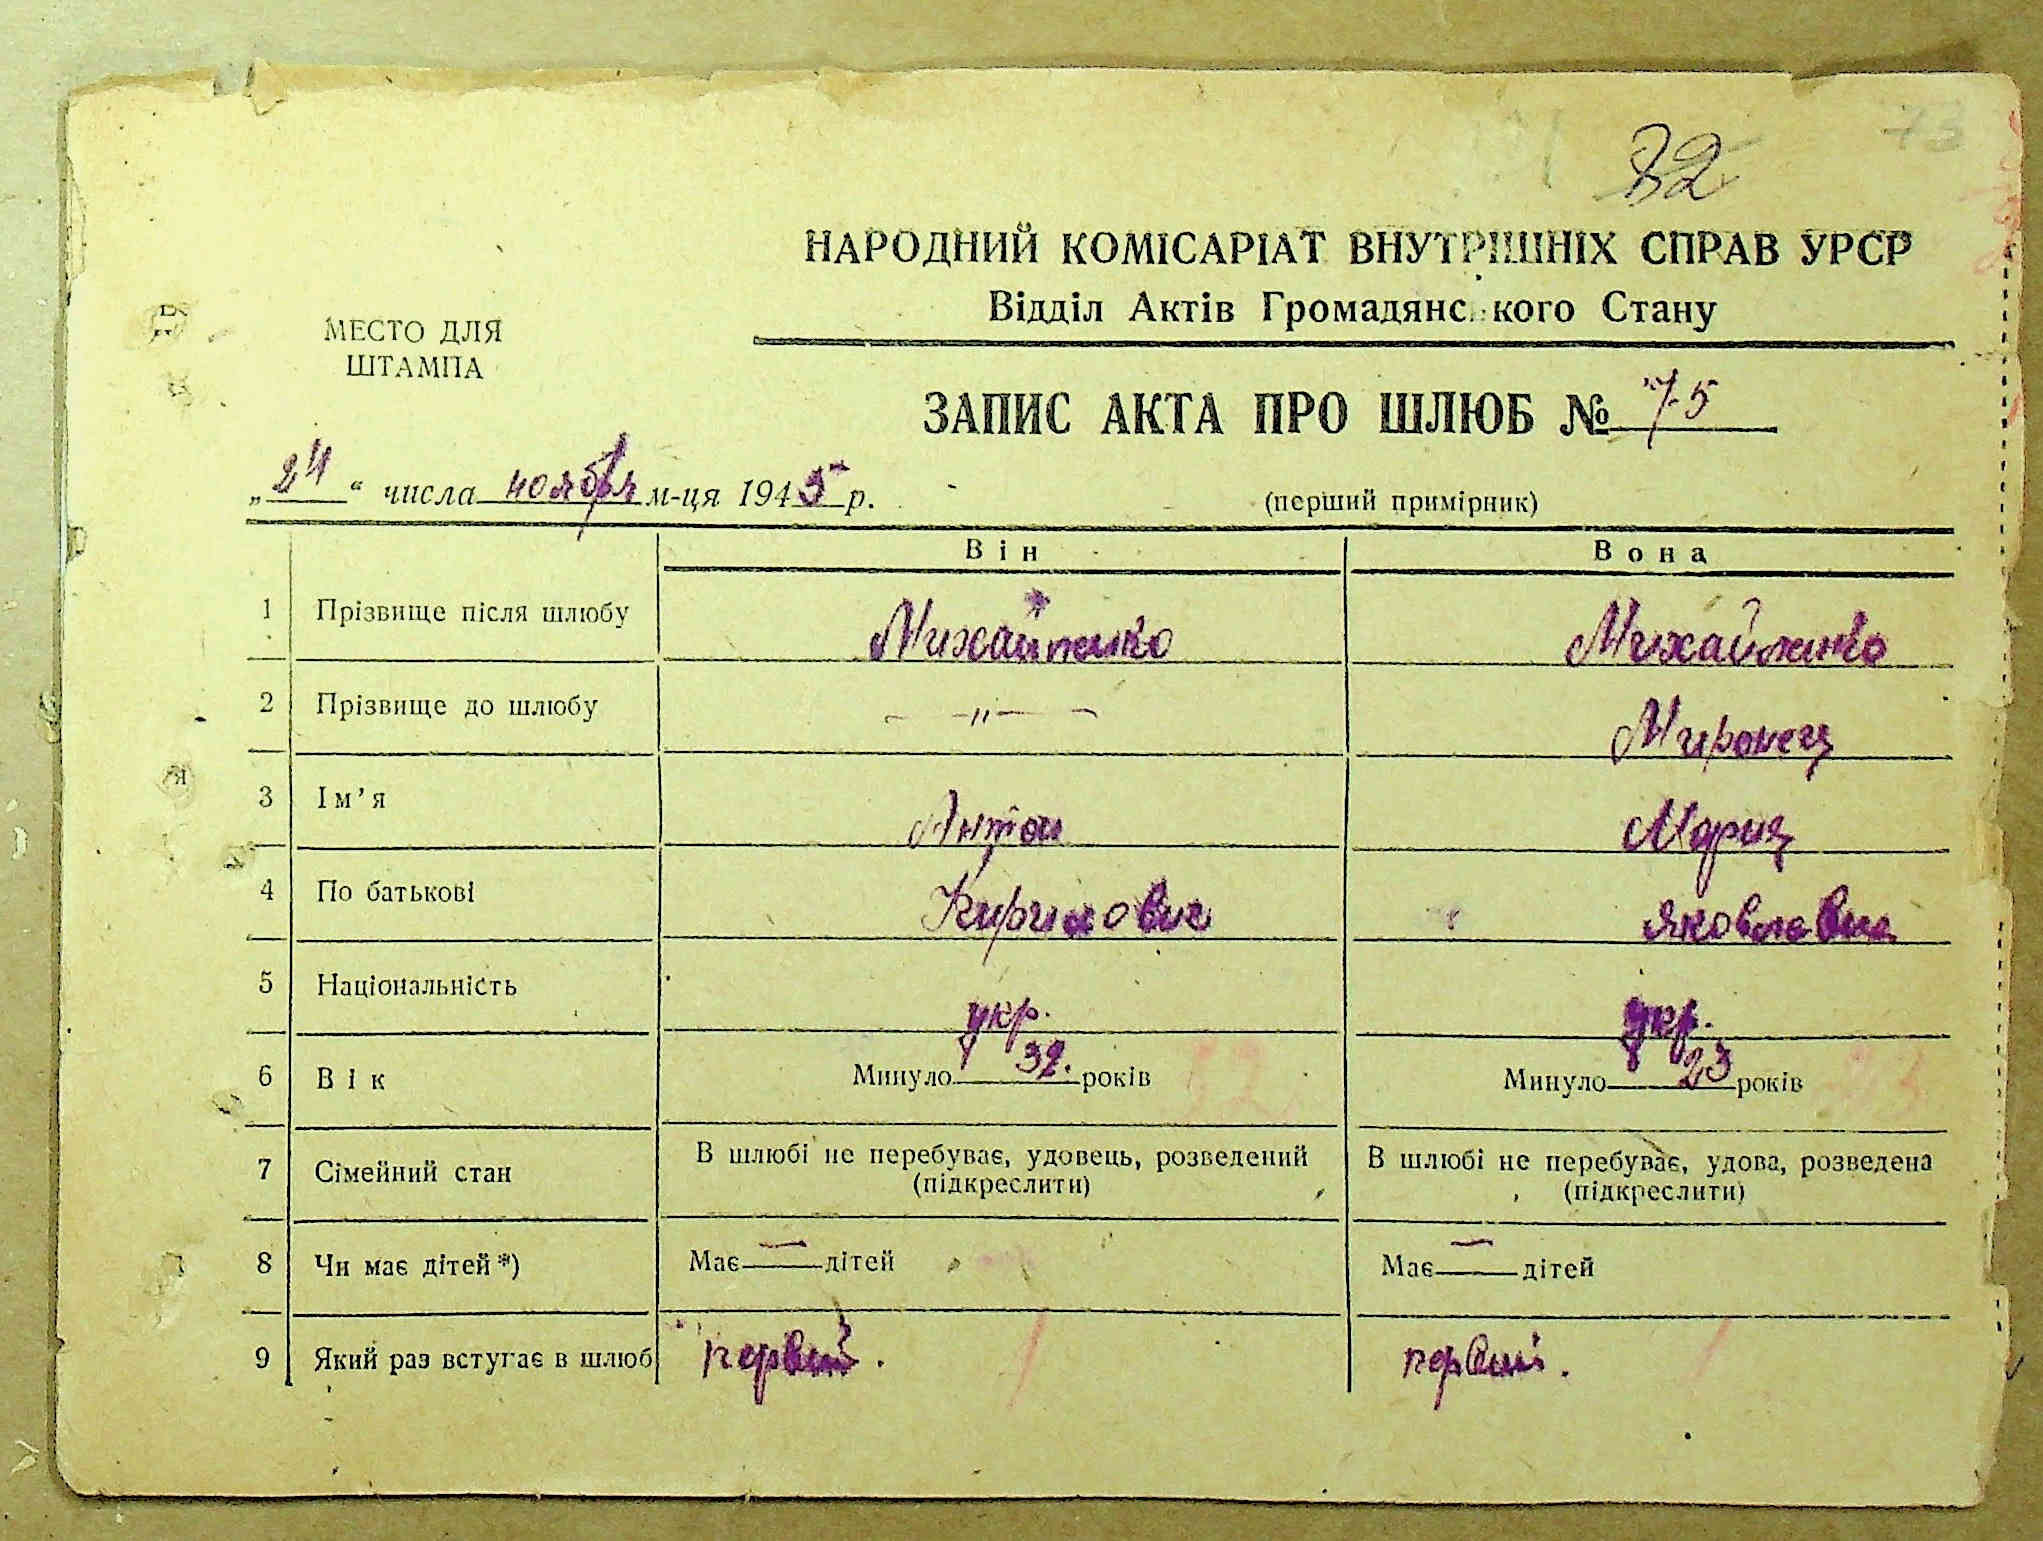 73
72
НАРОДНИЙ КОМІСАРІАТ ВНУТРІШНІХ СПРАВ УРСР
Відділ Актів Громадянського Стану
МЕСТО ДЛЯ
ШТАМПА
ЗАПИС АКТА ПРО ШЛЮБ № 75
„24“ числа ноября м-ця 1945 р.
(перший примірник)
Він Вона
1 Прізвище після шлюбу Михайленко Михайленко
2 Прізвище до шлюбу — " — Миронец
3 Ім’я Антон Мария
4 По батькові Кирилович Яковлевна
5 Національність укр. укр.
6 Вік Минуло 32. років 32 Минуло 23 років 23
7 Сімейний стан В шлюбі не перебуває, удовець, розведений В шлюбі не перебуває, удова, розведена
(підкреслити) (підкреслити)
8 Чи має дітей*) Має — дітей Має — дітей
9 Який раз вступає в шлюб первый. 1 первый. 1